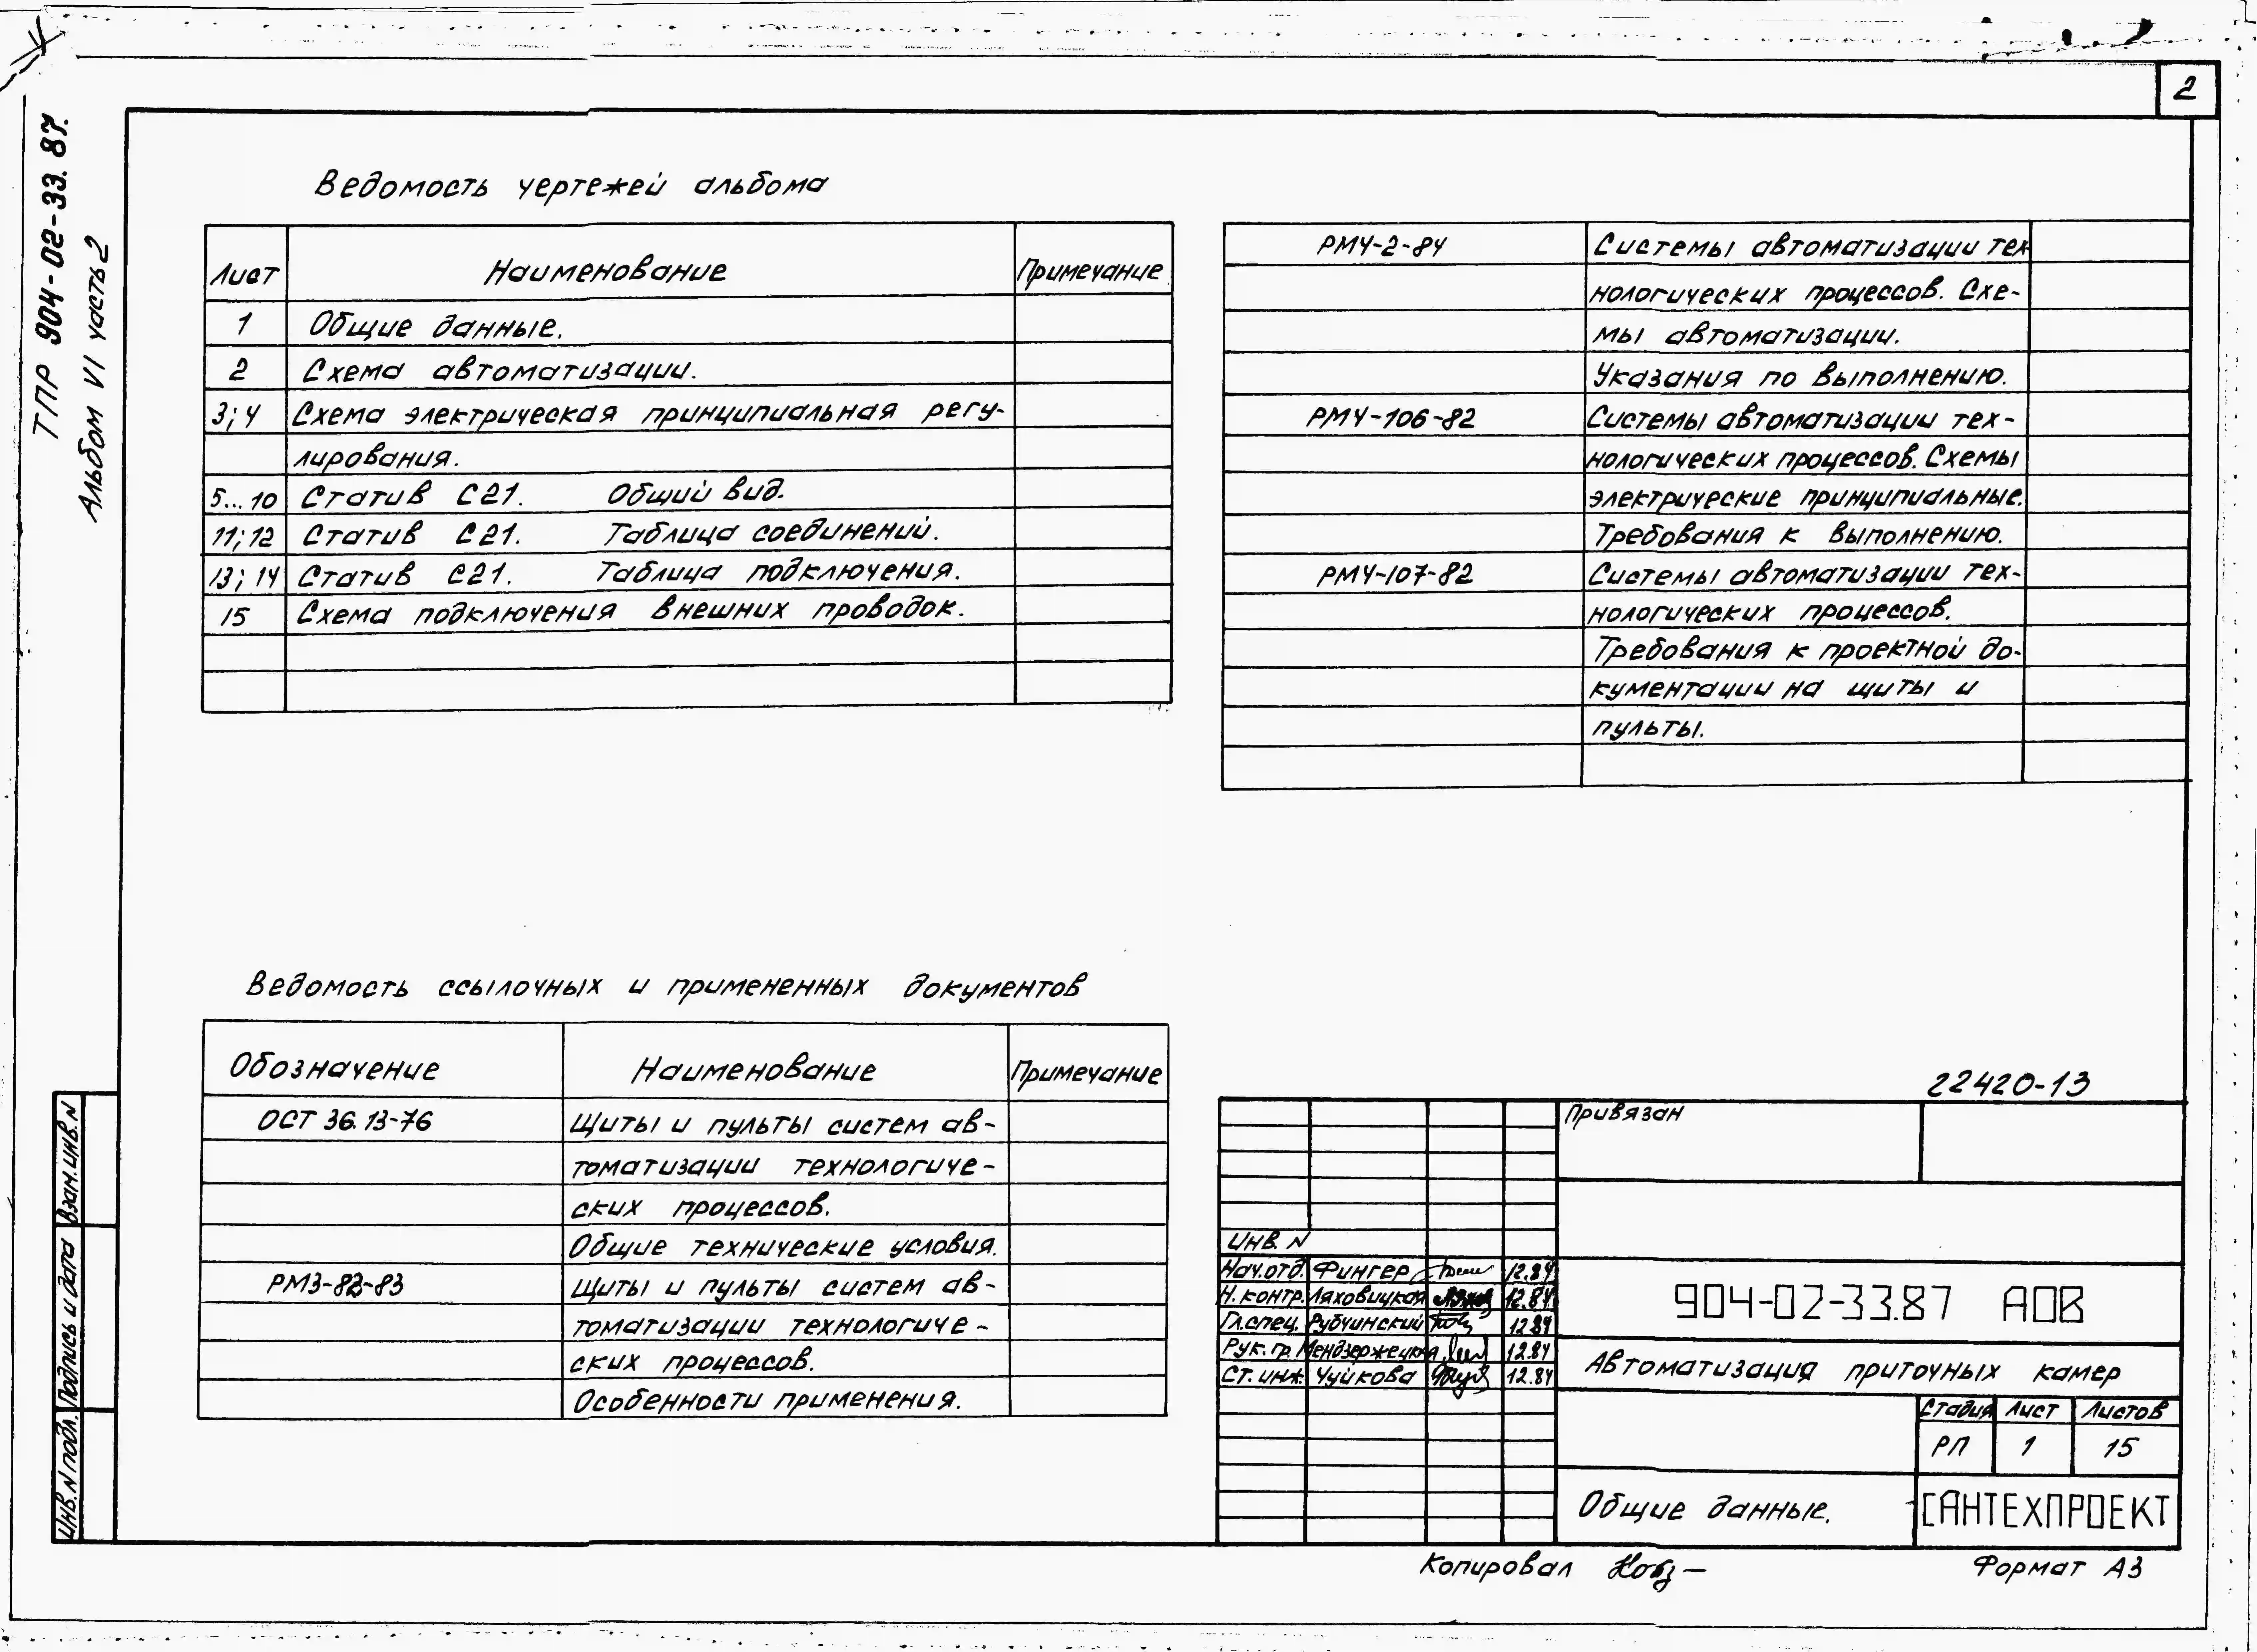 2
ТПР 904-02-33.87.
Альбом VI часть 2
Ведомость чертежей альбома
Лист Наименование Примечание
1 Общие данные.
2 Схема автоматизации.
3; 4 Схема электрическая принципиальная регу-
лирования.
5...10 Статив С21. Общий вид.
11; 12 Статив С21. Таблица соединений.
13; 14 Статив С21. Таблица подключения.
15 Схема подключения внешних проводок.
РМ4-2-84 Системы автоматизации тех-
нологических процессов. Схе-
мы автоматизации.
Указания по выполнению.
РМ4-106-82 Системы автоматизации тех-
нологических процессов. Схемы
электрические принципиальные.
Требования к выполнению.
РМ4-107-82 Системы автоматизации тех-
нологических процессов.
Требования к проектной до-
кументации на щиты и
пульты.
Ведомость ссылочных и примененных документов
Обозначение Наименование Примечание
ОСТ 36.13-76 Щиты и пульты систем ав-
томатизации технологиче-
ских процессов.
Общие технические условия.
РМ3-82-83 Щиты и пульты систем ав-
томатизации технологиче-
ских процессов.
Особенности применения.
22420-13
Привязан
Инв. N
Нач.отд. Фингер 12.84
Н. контр. Ляховицкая 12.84
Гл.спец. Рубчинский 12.84
Рук. гр. Мендзержецкая 12.84
Ст. инж. Чуйкова 12.84
904-02-33.87 АОВ
Автоматизация приточных камер
Стадия Лист Листов
РП 1 15
Общие данные.
САНТЕХПРОЕКТ
Взам. инв. N
Подпись и дата
Инв. N подл.
Копировал
Формат А3